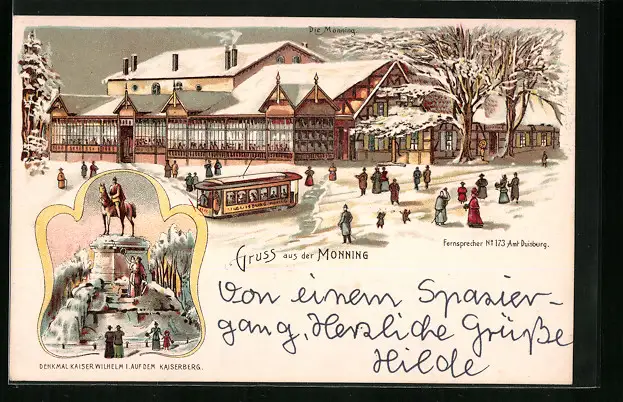 Die Monning
Fernsprecher No 173 Amt Duisburg.
Gruss aus der MONNING
Von einem Spazier-
gang, Herzliche Grüße
Hilde
DENKMAL KAISER WILHELM I. AUF DEM KAISERBERG.